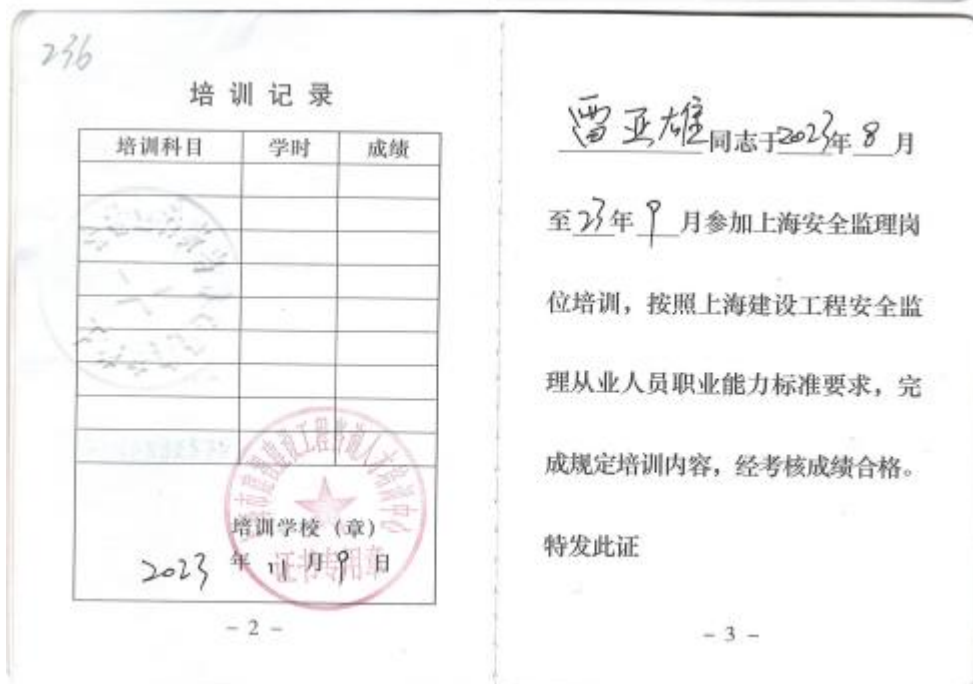 236
培训记录
培训科目 学时 成绩
培训学校（章）
2023年11月9日
证书专用章
- 2 -
雷亚雄同志于2023年8月
至23年9月参加上海安全监理岗
位培训，按照上海建设工程安全监
理从业人员职业能力标准要求，完
成规定培训内容，经考核成绩合格。
特发此证
- 3 -